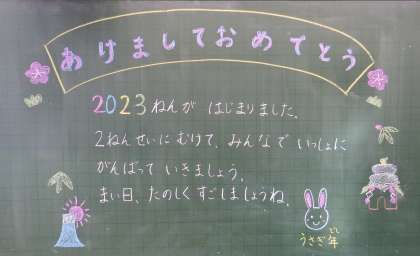 あけましておめでとう
2023ねんが はじまりました。
2ねんせいに むけて、みんなで いっしょに
がんばって いきましょう。
まい日、たのしく すごしましょうね。
うさぎ年
どし